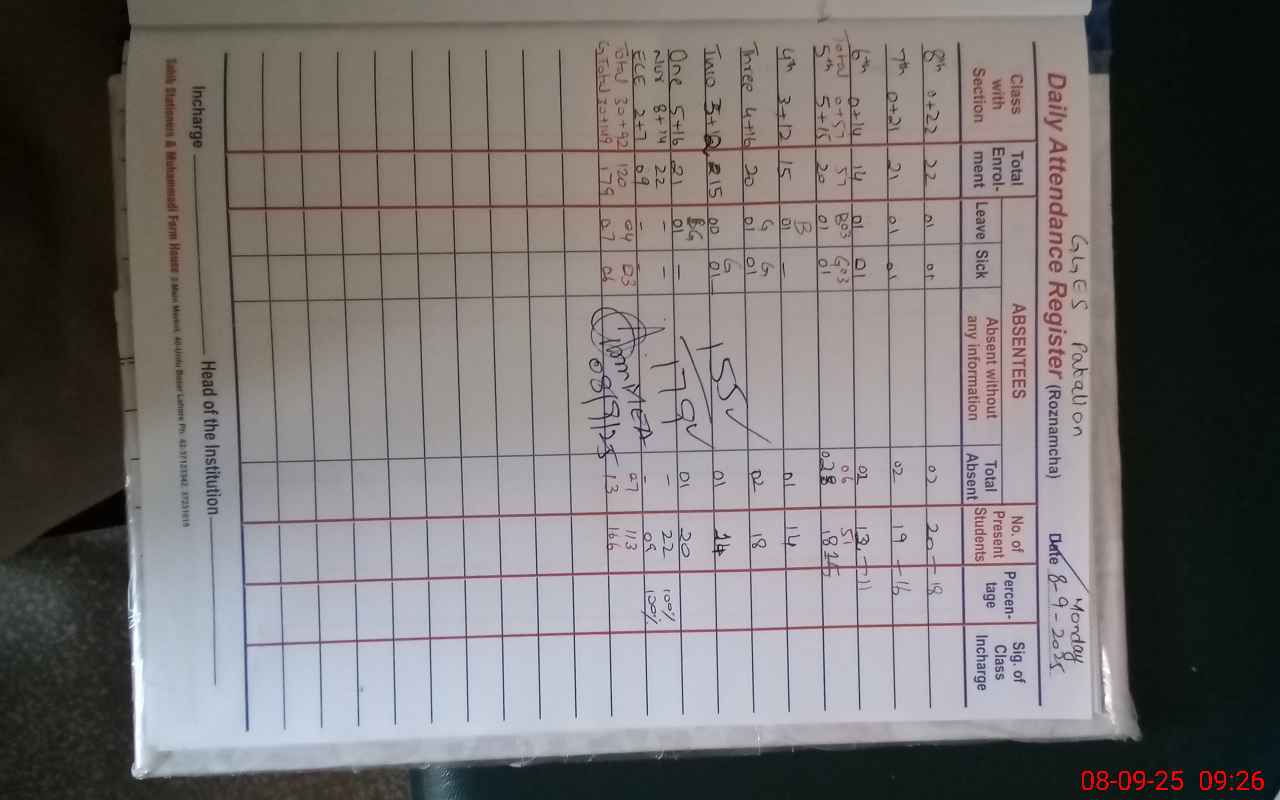 GGES Pakallon
Monday
Daily Attendance Register (Roznamcha) Date 8-9-2025
Class with Section Total Enrol-ment ABSENTEES Leave Sick Absent without any information Total Absent No. of Present Students Percen-tage Sig. of Class Incharge
8th 0+22 22 01 01 02 20 - 18
7th 0+21 21 01 01 02 19 - 16
6th 0+14 14 01 01 02 12 - 11
Total 0+57 57 B03 G03 06 51
5th 5+15 20 01 01 02 18
B
4th 3+12 15 01 - 01 14
G G
Three 4+16 20 01 01 02 18
G
Two 3+12 15 00 01 01 14
BG
One 5+16 21 01 - 01 20
Nur 8+14 22 - - - 22 100%
ECE 2+7 09 - - - 09 100%
Total 30+92 120 04 03 07 113
G.Total 30+149 179 07 06 13 166
155
179
MEA
08/9/25
Incharge Head of the Institution
Sahib Stationers & Muhammadi Form House 2-Main Market, 40-Urdu Bazar Lahore Ph: 42-37123342, 37231019
08-09-25 09:26